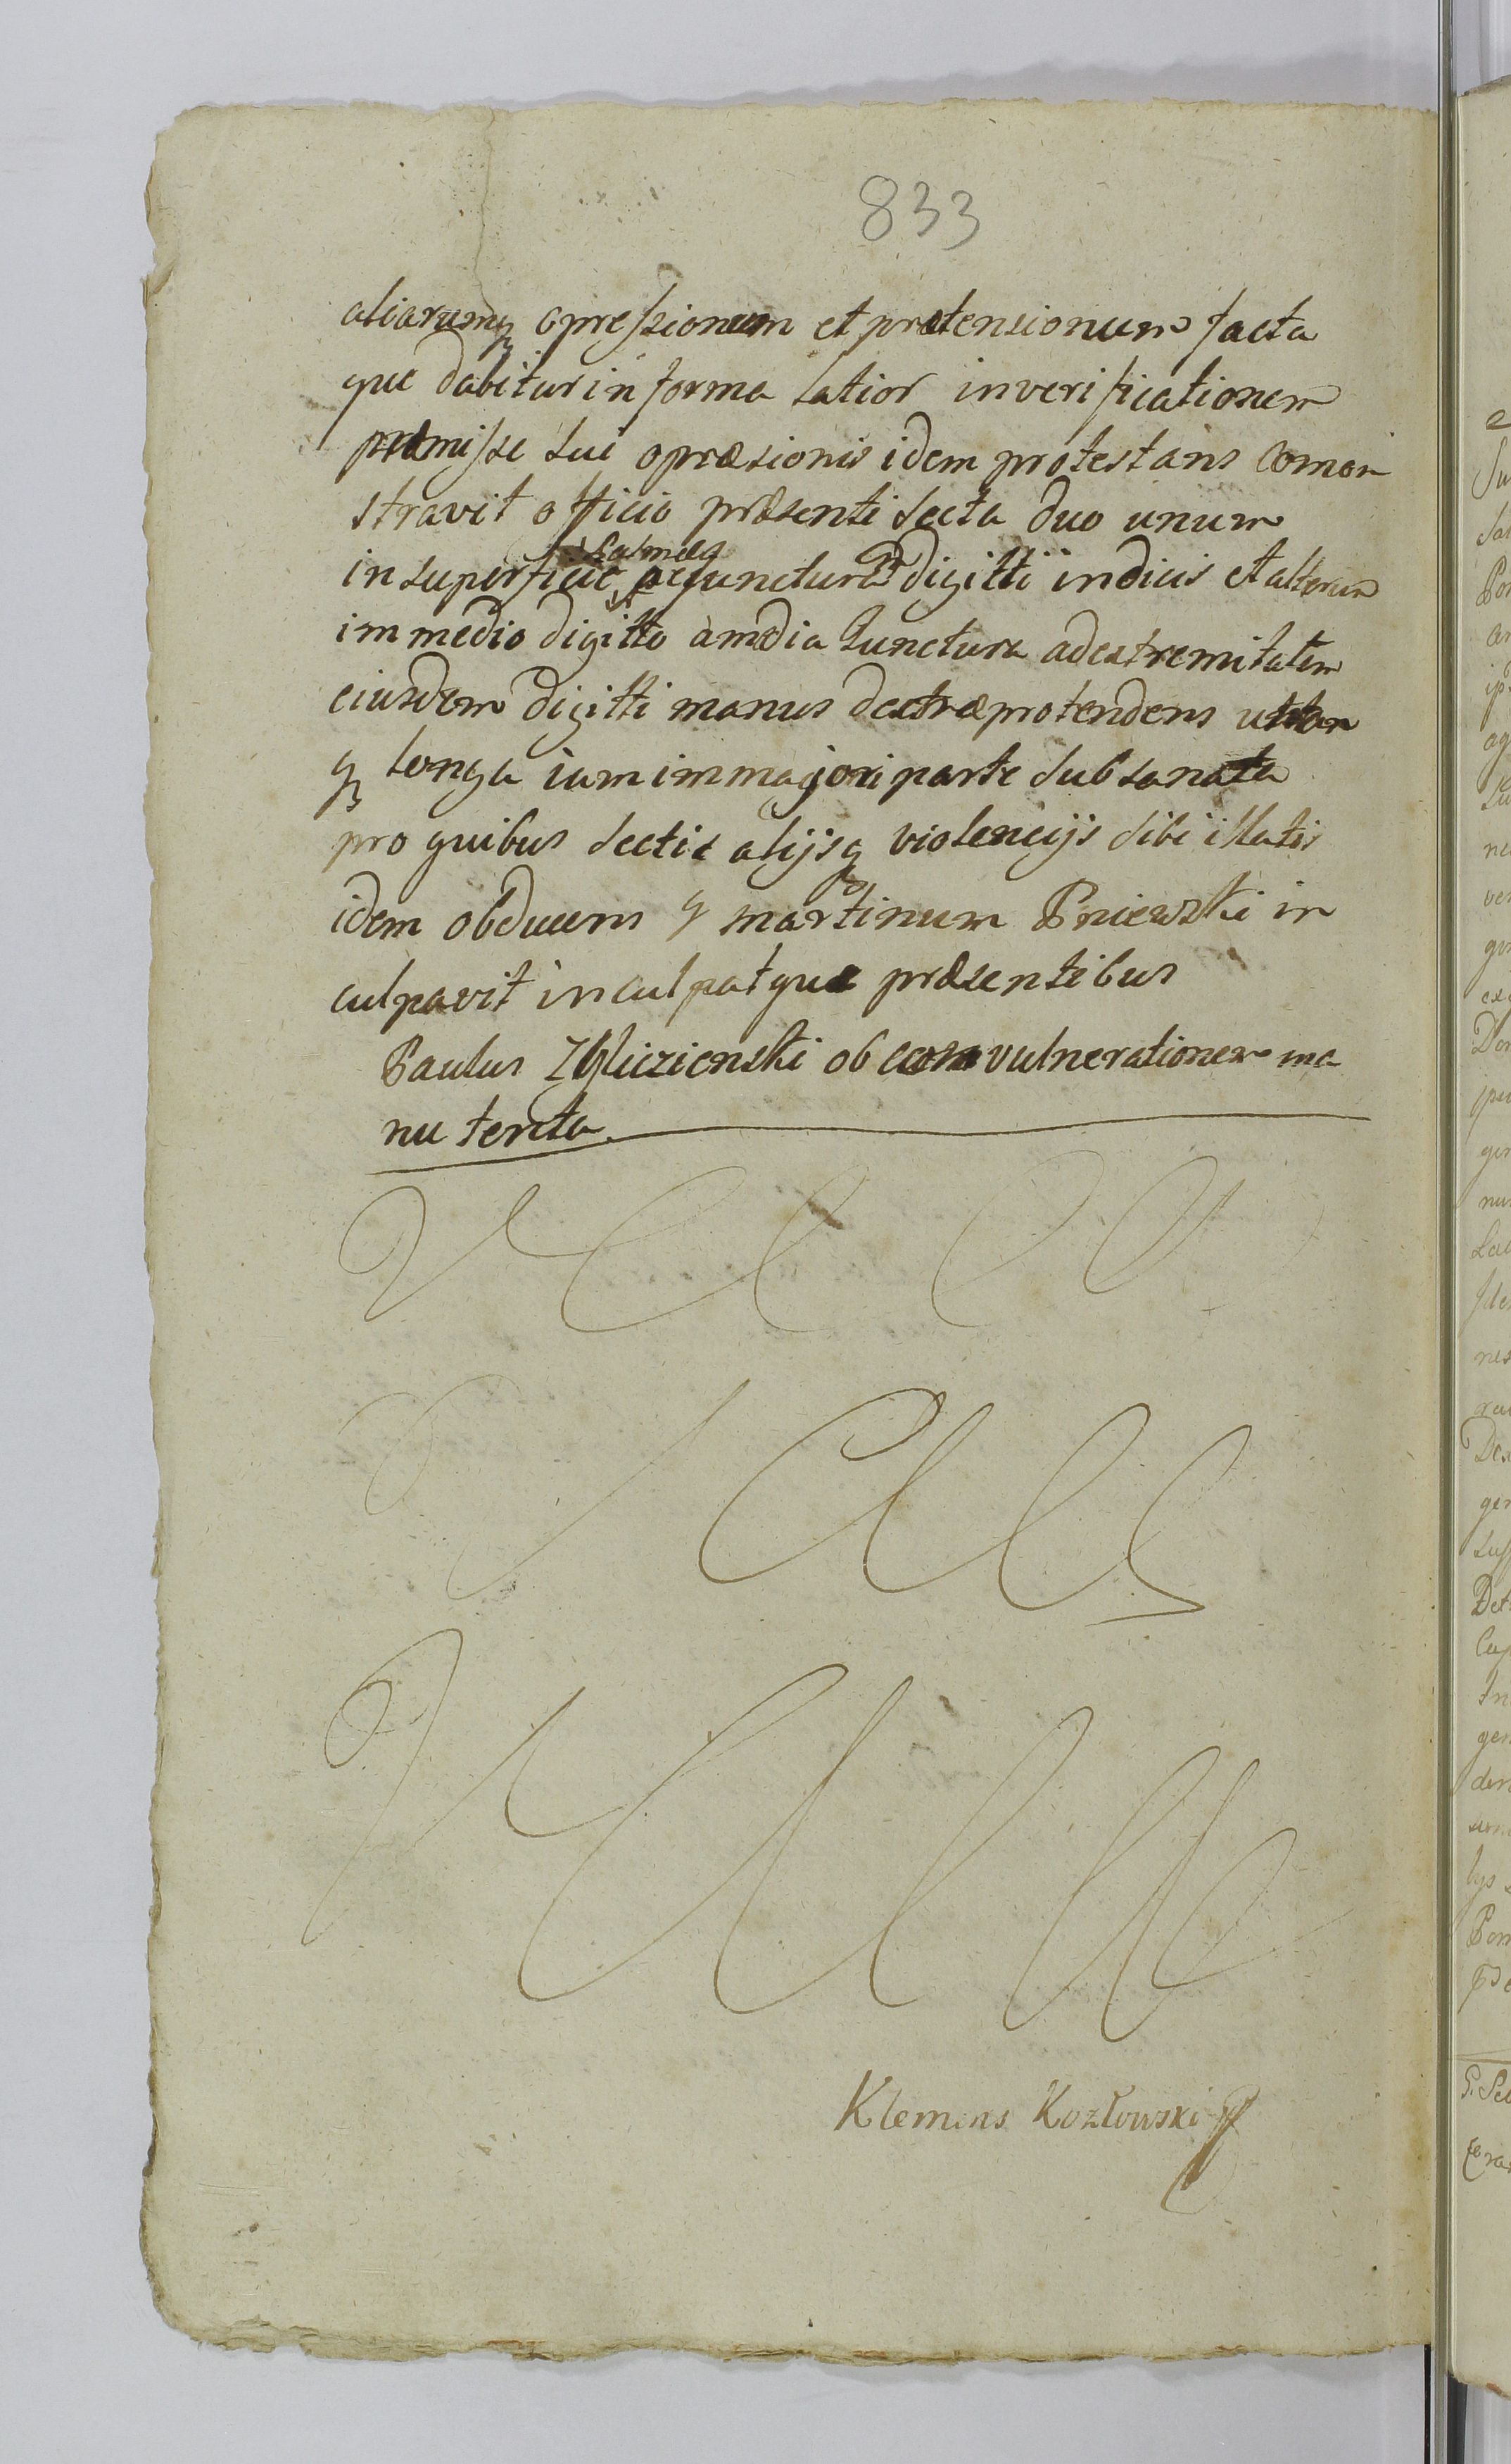 833
aliarumq opressionum et prætensionum facta
que dabitur in forma latior in verificationem
præmisse sui opræsionis idem protestans comon
stravit officio præsenti secta duo unum
palmæq
in superficie juncturæ digitti indicis et alterum
im medio digitto a mædia Iunctura ad extremitatem
eiusdem digitti manus dextræ protendens utran
q longa iam im majori parte subsanata
pro quibus sectis alijsq violencijs sibi illatis
idem obducens q martinum Pniewski in
culpavit inculpatque præsentibus
Paulus Zbliczienski ob vulnerationem ma
nu tencta
Klemens Kozłowski